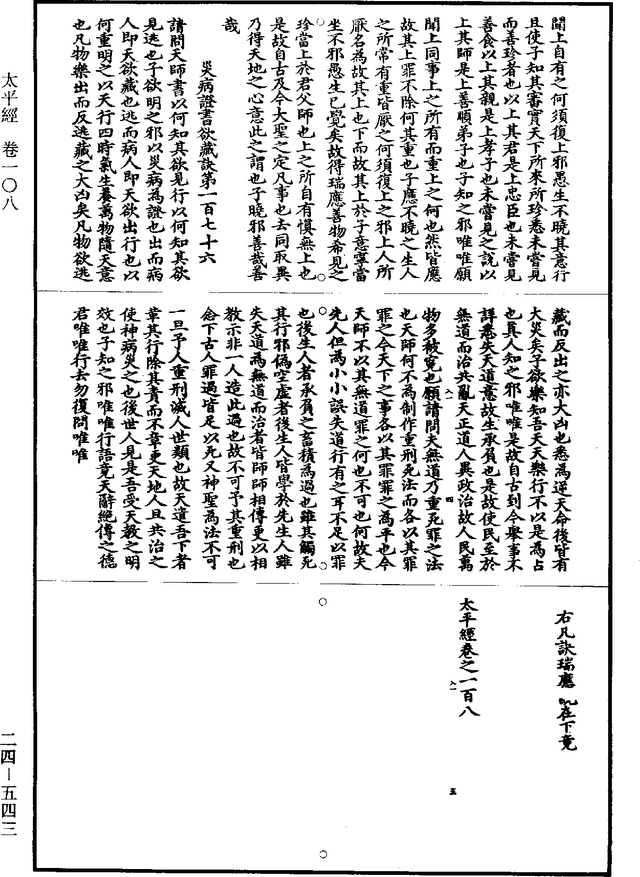 聞上自有之何須復上邪愚生不曉其意行
且使子知其審實天下所來所珍悉未嘗見
而善珍者也以上其君是上忠臣也未嘗見
善食以上其親是上孝子也未嘗見之說以
上其師是上善順弟子也子知之邪唯唯願
聞上同事上之所有而重上之何也然皆應
故其上罪不除何其重也子應不曉之生人
之所常有重皆厭之何須復上之邪上人所
厭名為故其上也下而故其上於子意寧當
坐不邪愚生已覺矣故得瑞應善物希見之
珍當上於君父師也上之所自有慎無上也
是故自古及今大聖之定凡事也去同取異
乃得天地之心意此之謂也子曉邪善哉善
哉
災病證書欲藏訣第一百七十六
請問天師書以何知其欲見行以何知其欲
見逃也子欲明之邪以災病為證也出而病
人即天欲藏也逃而病人即天欲出行也以
何重明之以天行四時氣生養萬物隨天意
也凡物樂出而反逃藏之大凶矣凡物欲逃
藏而反出之亦大凶也悉為逆天命後皆有
大災矣子欲樂知吾天天樂行不以是為占
也真人知之邪唯唯是故自古到今舉事不
詳悉失天道意故生承負也是故使民至於
無道而治共亂天正道人異政治故人民萬
物多被冤也願請問夫無道乃重死罪之法
也天師何不為制作重刑死法而各以其罪
罪之今天下之事各以其罪罪之為平也今
天師不以其無道罪之何也不可也何故夫
先人但為小小誤失道行有之耳不足以罪
也後生人者承負之畜積為過也雖其觸死
其行邪偽空虛者後生人皆學於先生人雖
失天道為無道而治者皆師師相傳更以相
教示非一人造此過也故不可予其重刑也
念下古人罪過皆足以死又神聖為法不可
一旦予人重刑滅人世類也故天遣吾下者
章其行除其責而不章更天地人且共治之
使神病災之也後世人見是吾受天教之明
效也子知之邪唯唯行語竟天辭絕傳之德
君唯唯行去勿復問唯唯
右凡訣瑞應 訊在下竟
太平經卷之一百八
太平經 卷一〇八
二四－五四三
四
五